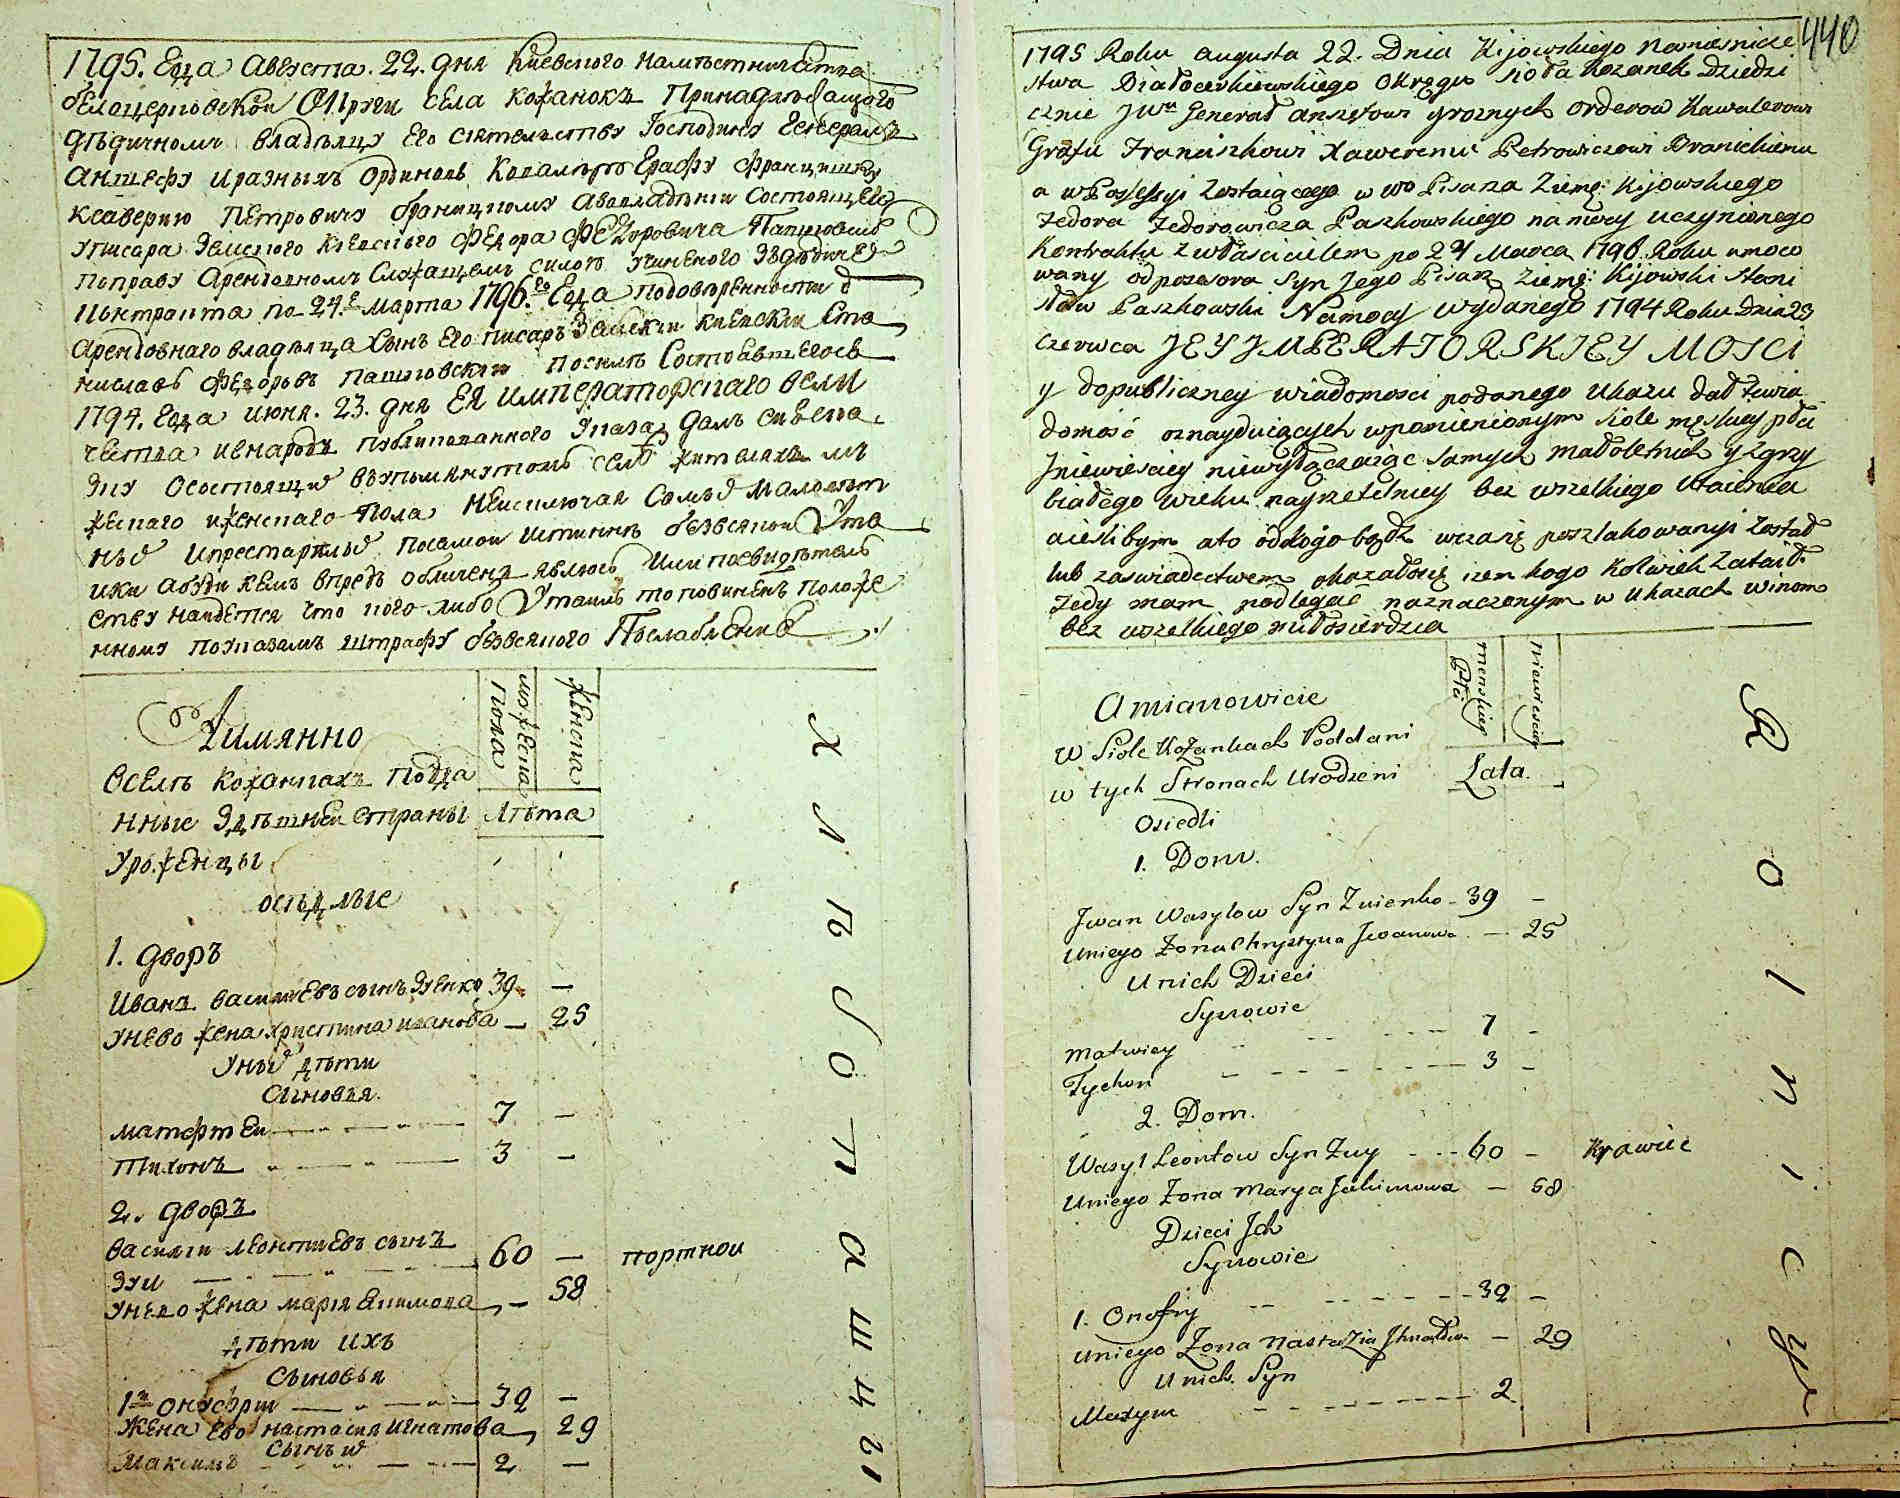 1795. Года Августа. 22. дня Киевского Наместничества
белоцерковской Округи села Кожанокъ Принадлежащого
дѣдичному владѣлцу Его Сиятелству Господину Генералъ
Аншефу и разныхъ Ординовъ Кавалеру Графу Францишку
Ксаверию Петровичу браницкому а во владѣнии Состоящего
У писара Земского Киевского Федора Федоровича Пашковского
по праву Арендовному Служащему силою учиненого З дѣдичемъ
Контракта по 24.е марта 1796.го Года по доверенности
Арендовнаго владѣлца Сынъ Его писаръ Земский Киевский Ста
ниславъ Федоровъ Пашковский по силѣ Состоявшегося
1794. Года июня. 23. дня ЕЯ Императорскаго вели
чества и в народъ публикованного Указа далъ сию ска
зку О состоящихъ въ упомянутомъ селѣ жителяхъ му
жескаго и женскаго Пола не исключая Самыхъ Малолет
ныхъ и престарѣлыхъ по самой истиннѣ без всякой Ута
йки а буди кемъ впредь обличенъ явлюсь Или по свидѣтель
ству найдется что кого-либо Утаилъ то повиненъ положе
нному по указамъ штрафу безвсякого Послабления
Аимянно
мужеска Пола
женска
Лѣта
Вселѣ Кожанкахъ подда
нные Здѣшней страны
Уроженцы
осѣдлые
1. дворъ
Иванъ васильевъ сынъ Зуенко 39 —
унево жена христина иванова — 25
у ныхъ дѣти
Сыновья.
матфтей 7 —
Тихонъ 3 —
2. дворъ
василий леонтиевъ сынъ
Зуй 60 — портной
унево жена мария Якимова — 58
дѣти ихъ
Сыновья
1й онуфрий 32 —
Жена Ево настасия игнатова 29
Сынъ их
Максимъ 2 —
Хлѣбопашцы
440
1795 Roku augusta 22. Dnia Kijowskiego Namiesnicze
stwa Białocerkiewskiego Okręgu sioła Kozanek Dziedzi
cznie JWu Generał anszefowi yroznych orderow Kawalerowi
Grafu Franciszkowi Xaweremu Petrowiczowi Branickiemu
a w Possessyi Zostaiącego u WO Pisarza Ziemę: Kijowskiego
Fedora Fedorowicza Paszkowskiego na mocy uczynionego
Kontraktu z właścicielem po 24 Marca 1796 Roku umoco
wany od posesora Syn Jego Pisarz Ziemę: Kijowski Stani
sław Paszkowski Na mocy wydanego 1794 Roku Dnia 23
Czerwca JEY JMPERATORSKIEY MOSCI
y do publiczney wiadomosci podanego Ukazu dał twia
domość o znayduiących wpomienionym siole męskiey płci
y niewiesciey niewyłączaiąc samych małoletnich y zgrzy
białego wieku nayrzetelniey bez wszelkiego utaienia
a ieslibym ato od kogo bądź wczasię poszlakowanyi został
lub zaswiadectwem okazałosię izem kogo kolwiek zataił
Tedy mam podlegać naznaczonym w ukazach winom
bez wszelkiego miłosierdzia
menskiey Płci
niewiesciey
Lata.
Amianowicie
W Siole Kożankach Poddani
w tych Stronach Urodzeni
Osiedli
1. Dom.
Jwan Wasylow Syn Zuienko - 39 —
Uniego Zona Chrystyna Jwanowa — 25
U nich Dzieci
Synowie
Matwiey 7 -
Tychon 3 -
2. Dom.
Wasyl Leontow Syn Zuy 60 — Krawiec
Uniego Zona Marya Jakimowa — 58
Dzieci Jch
Synowie
1. Onofry 32 —
Uniego Zona Nastazia Jhnatowa — 29
U nich. Syn
Maxym 2
Rolnicy